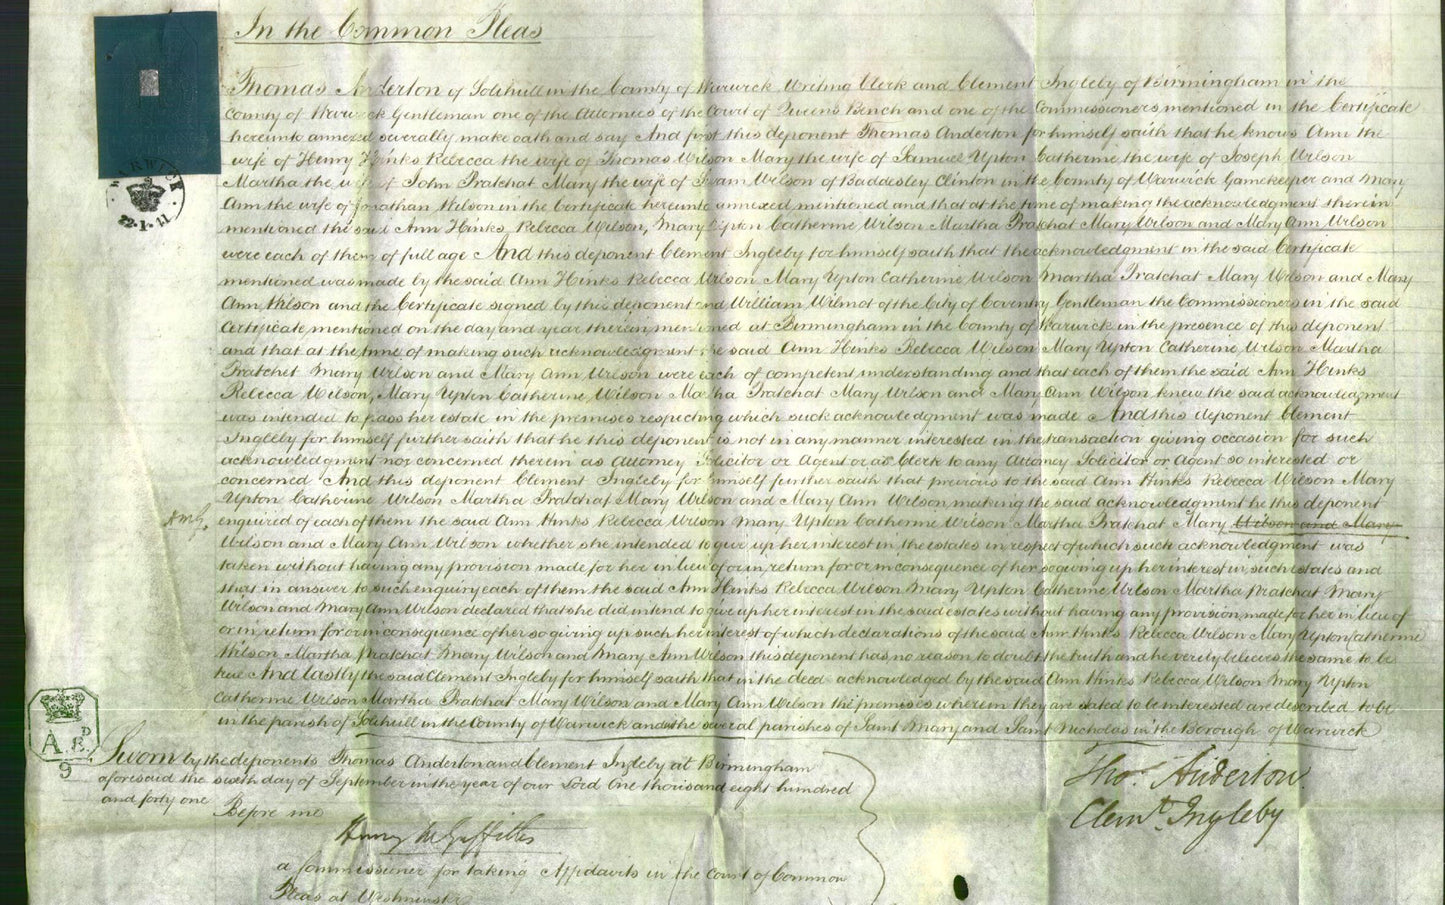 In the Common Pleas
Thomas Anderton of Solihull in the County of Warwick Writing Clerk and Clement Ingleby of Birmingham in the
County of Warwick Gentleman one of the Attornies of the Court of Queens Bench and one of the Commissioners mentioned in the Certificate
hereunto annexed severally make oath and say And first this deponent Thomas Anderton for himself saith that he knows Ann the
wife of Henry Hinks Rebecca the wife of Thomas Wilson Mary the wife of Samuel Upton Catherine the wife of Joseph Wilson
Martha the wife of John Pratchat Mary the wife of Wilson of Baddesley Clinton in the County of Warwick Gamekeeper and Mary
Ann the wife of Jonathan Wilson in the Certificate hereunto annexed mentioned and that at the time of making the acknowledgment therein
mentioned the said Ann Hinks, Rebecca Wilson, Mary Upton Catherine Wilson Martha Pratchat Mary Wilson and Mary Ann Wilson
were each of them of full age And this deponent Clement Ingleby for himself saith that the acknowledgment in the said Certificate
mentioned was made by the said Ann Hinks Rebecca Wilson Mary Upton Catherine Wilson Martha Pratchat Mary Wilson and Mary
Ann Wilson and the Certificate signed by this deponent and William Wilmot of the City of Coventry Gentleman the Commissioners in the said
Certificate mentioned on the day and year therein mentioned at Birmingham in the County of Warwick in the presence of this deponent
and that at the time of making such acknowledgment the said Ann Hinks Rebecca Wilson Mary Upton Catherine Wilson Martha
Pratchet Mary Wilson and Mary Ann Wilson were each of competent understanding and that each of them the said Ann Hinks
Rebecca Wilson, Mary Upton Catherine Wilson Martha Pratchat Mary Wilson and Mary Ann Wilson knew the said acknowledgment
was intended to pass her estate in the premises respecting which such acknowledgment was made And this deponent Clement
Ingleby for himself further saith that he this deponent is not in any manner interested in the transaction giving occasion for such
acknowledgment nor concerned therein as Attorney Solicitor or Agent or as Clerk to any Attorney Solicitor or Agent so interested or
concerned And this deponent Clement Ingleby for himself further saith that previous to the said Ann Hinks Rebecca Wilson Mary
Upton Catherine Wilson Martha Pratchat Mary Wilson and Mary Ann Wilson making the said acknowledgment he this deponent
enquired of each of them the said Ann Hinks Rebecca Wilson Mary Upton Catherine Wilson Martha Pratchat Mary Wilson and Mary
Wilson and Mary Ann Wilson whether she intended to give up her interest in the estates in respect of which such acknowledgment was
taken without having any provision made for her in lieu of or in return for or in consequence of her so giving up her interest in such estates and
that in answer to such enquiry each of them the said Ann Hinks Rebecca Wilson Mary Upton Catherine Wilson Martha Pratchat Mary
Wilson and Mary Ann Wilson declared that she did intend to give up her interest in the said estates without having any provision made for her in lieu of
or in return for or in consequence of her so giving up such her interest of which declarations of the said Ann Hinks Rebecca Wilson Mary Upton Catherine
Wilson Martha Pratchat Mary Wilson and Mary Ann Wilson this deponent has no reason to doubt the truth and he verily believes the same to be
true And lastly the said Clement Ingleby for himself saith that in the deed acknowledged by the said Ann Hinks Rebecca Wilson Mary Upton
Catherine Wilson Martha Pratchat Mary Wilson and Mary Ann Wilson the premises wherein they are stated to be interested are described to be
in the parish of Solihull in the County of Warwick and in the several parishes of Saint Mary and Saint Nicholas in the Borough of Warwick
Sworn by the deponents Thomas Anderton and Clement Ingleby at Birmingham
aforesaid the sixth day of September in the year of our Lord One thousand eight hundred
and forty one
Before me
a Commissioner for taking Affidavits in the Court of Common
Pleas at Westminster
Thos. Anderton
Clemt. Ingleby
WARWICK
22.1.41
A.R.D
9